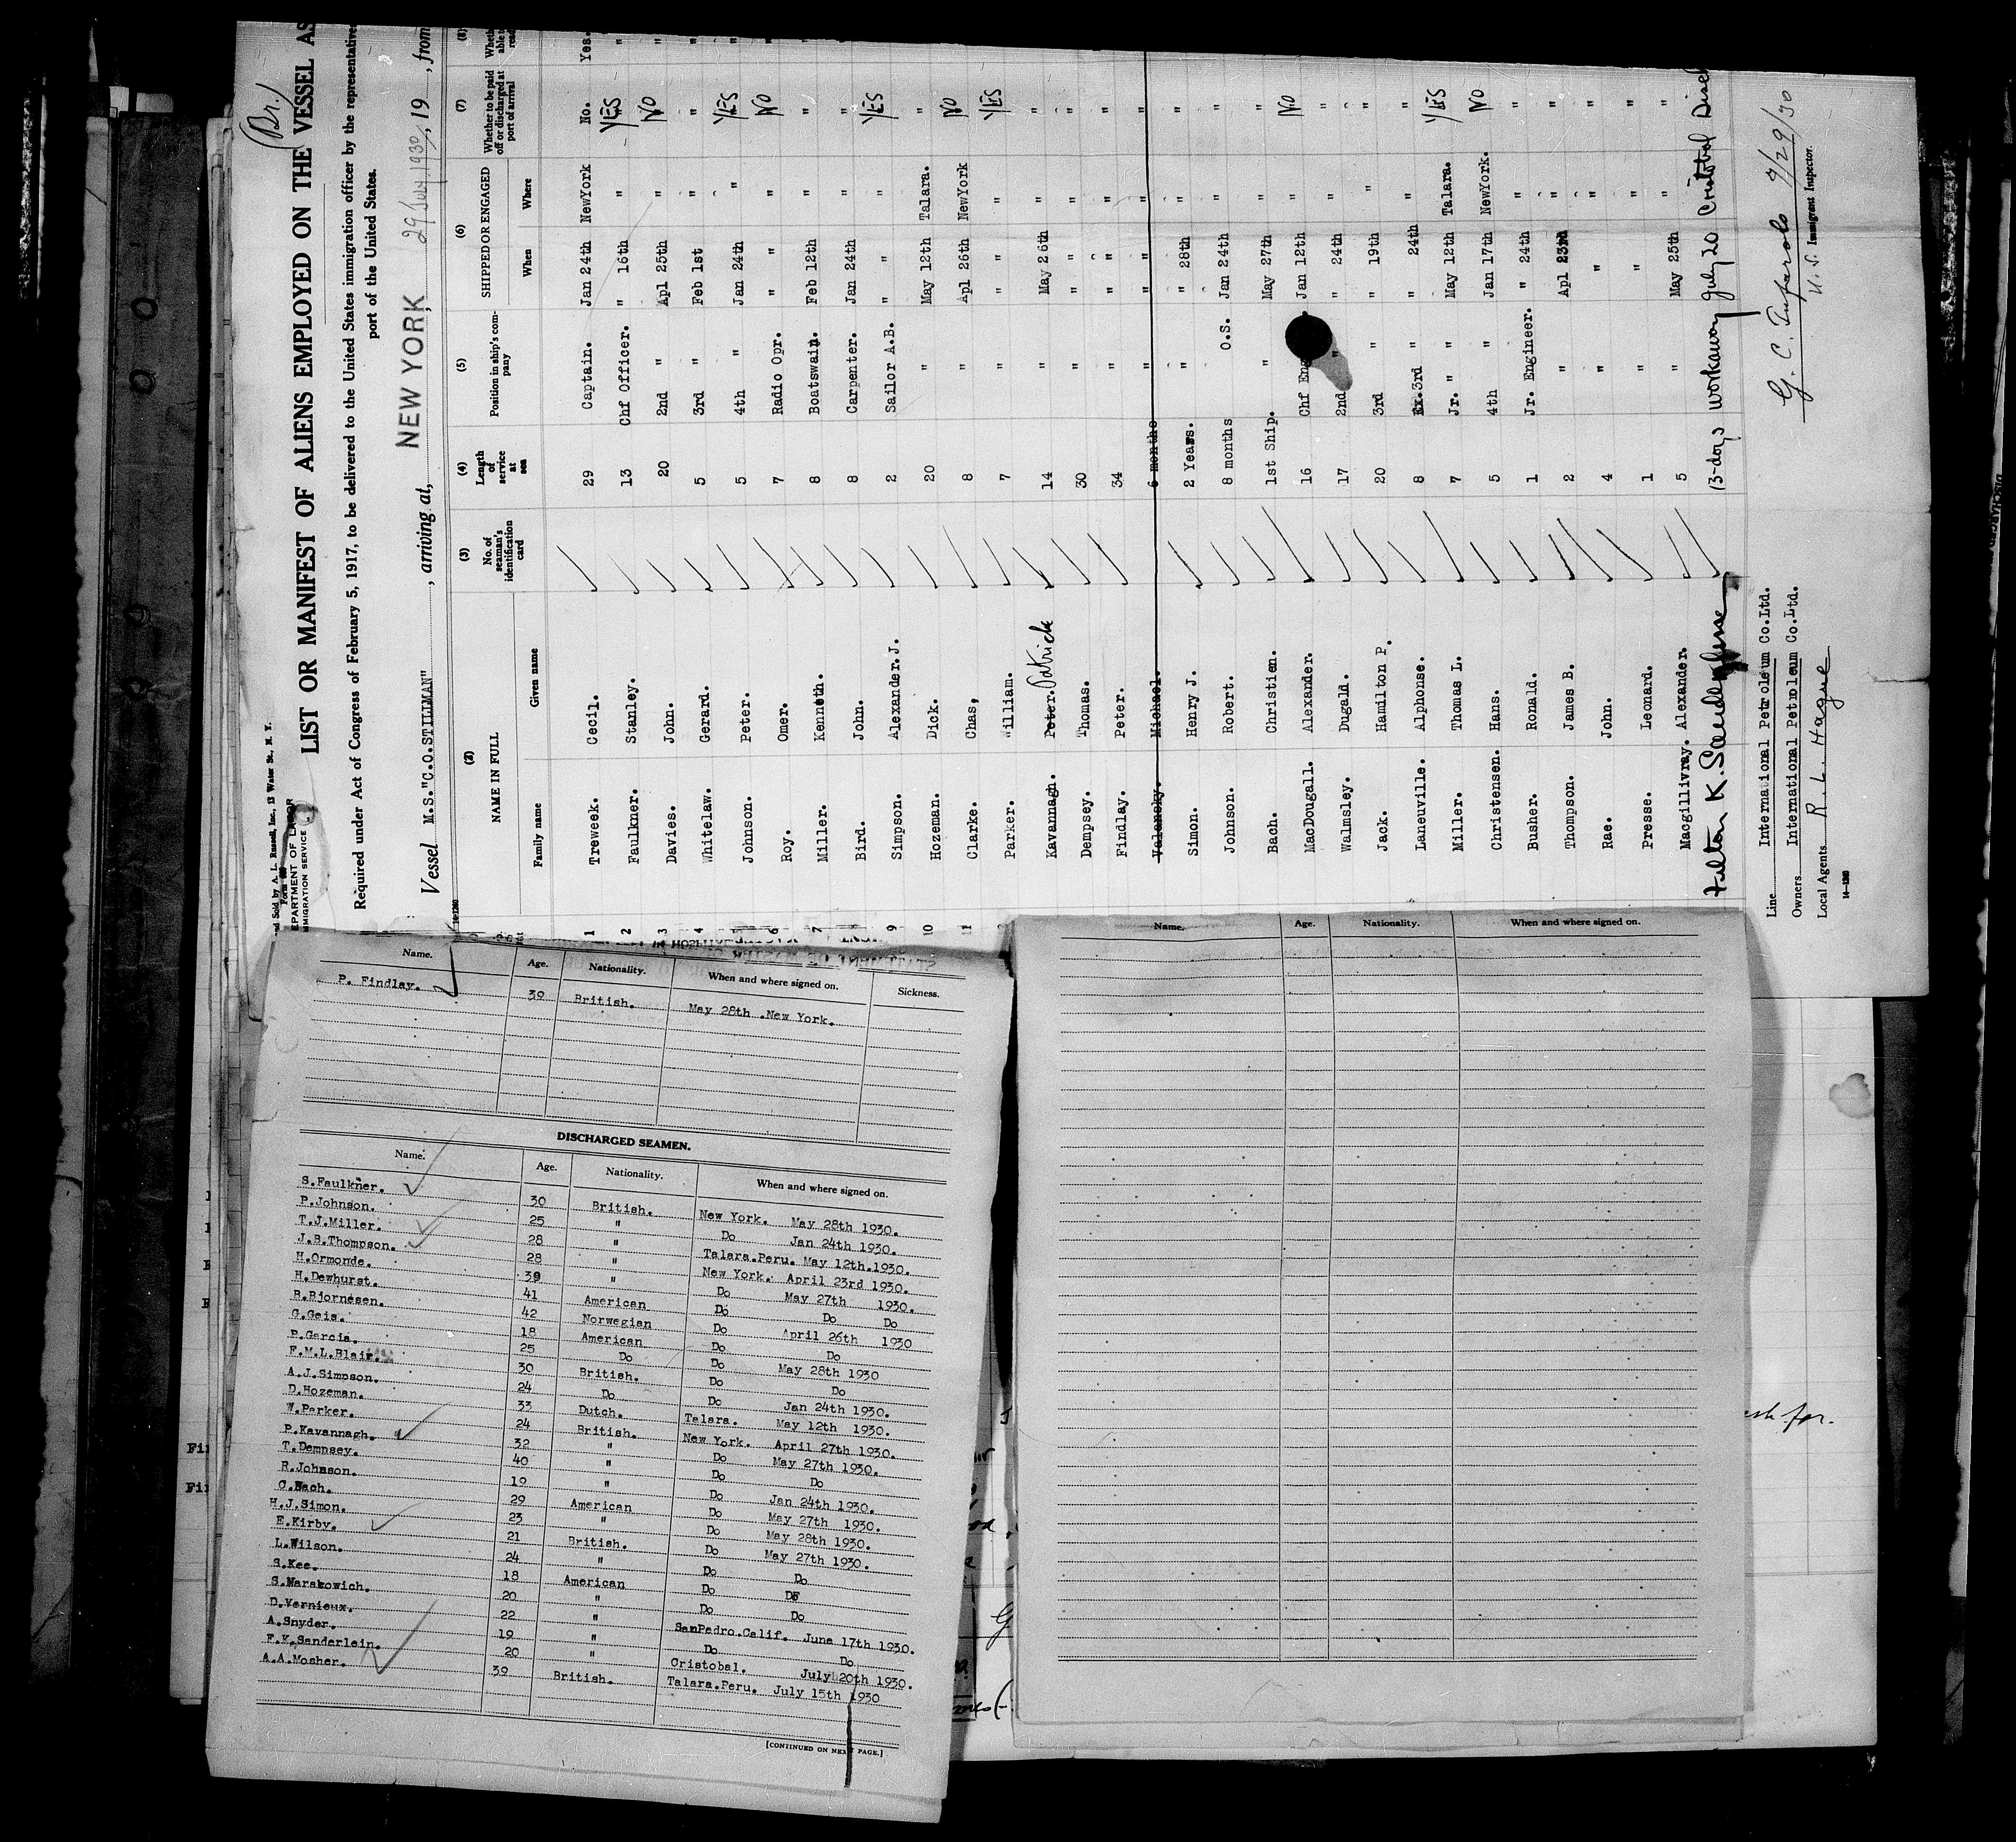 (Br.)
and Sold by A. L. Russell, Inc., 13 Water St., N. Y.
DEPARTMENT OF LABOR
IMMIGRATION SERVICE
LIST OR MANIFEST OF ALIENS EMPLOYED ON THE VESSEL AS
Required under Act of Congress of February 5, 1917, to be delivered to the United States immigration officer by the representative
port of the United States.
Vessel M.S."C.O.STILLMAN", arriving at, NEW YORK 29 July 1930, 19 , from
(2) (3) (4) (5) (6) (7) (8)
NAME IN FULL No. of seaman's identification card Length of service at sea Position in ship's company SHIPPED OR ENGAGED Whether to be paid off or discharged at port of arrival
Family name Given name When Where
1 Treweek. Cecil. 29 Captain. Jan 24th NewYork No. Yes.
2 Faulkner. Stanley. 13 Chf Officer. " 16th " YES "
3 Davies. John. 20 2nd " Apl 25th " NO "
4 Whitelaw. Gerard. 5 3rd " Feb 1st " " "
5 Johnson. Peter. 5 4th " Jan 24th " YES "
6 Roy. Omer. 7 Radio Opr. " " NO "
7 Miller. Kenneth. 8 Boatswain. Feb 12th " " "
8 Bird. John. 8 Carpenter. Jan 24th " "
9 Simpson. Alexander.J. 2 Sailor A.B. " " YES
10 Hozeman. Dick. 20 " May 12th Talara. "
11 Clarke. Chas, 8 " Apl 26th NewYork NO
Parker. William. 7 " " " YES
Kavannagh. Peter. Patrick 14 " May 26th " "
Dempsey. Thomas. 30 " " " "
Findlay. Peter. 34 " " " "
Valansky. Michael. 6 months " " " "
Simon. Henry J. 2 Years. " " 28th " "
Johnson. Robert. 8 months O.S. Jan 24th " "
Bach. Christien. 1st Ship. " May 27th " "
MacDougall. Alexander. 16 Chf Eng Jan 12th " NO
Walmsley. Dugald. 17 2nd " " 24th " "
Jack. Hamilton P. 20 3rd " " 19th " "
Laneuville. Alphonse. 8 Ex.3rd " " 24th " "
Miller. Thomas L. 7 Jr. " May 12th Talara. YES
Christensen. Hans. 5 4th " Jan 17th NewYork. NO
Busher. Ronald. 1 Jr. Engineer. " 24th " "
Thompson. James B. 2 " Apl 23rd " "
Rae. John. 4 " " " "
Presse. Leonard. 1 " " " "
Macgillivray. Alexander. 5 " May 25th " "
13-days workaway July 20 Cristobal
Line International Petroleum Co.Ltd.
Owners International Petroleum Co.Ltd.
Local Agents R. L. Hague
14-1240
7/29/30
U.S. Immigrant Inspector.
Name. Age. Nationality. When and where signed on. Sickness.
P. Findlay. 39 British. May 28th .New York.
DISCHARGED SEAMEN.
Name. Age. Nationality. When and where signed on.
S.Faulkner. 30 British. New York. May 28th 1930.
P.Johnson. 25 " Do Jan 24th 1930.
T.J.Miller. 28 " Talara.Peru. May 12th.1930.
J.B.Thompson. 28 " New York. April 23rd 1930.
H.Ormonde. 39 " Do May 27th 1930.
H.Dewhurst. 41 American Do Do Do
B.Bjornesen. 42 Norwegian Do April 26th 1930
G.Geis. 18 American Do Do
P.Garcia. 25 Do Do May 28th 1930
F.M.L.Blair. 30 British. Do Do
A.J.Simpson. 24 Do Do Jan 24th 1930.
D.Hozeman. 33 Dutch. Talara. May 12th 1930.
W.Parker. 24 British. New York. April 27th 1930.
P.Kavannagh. 32 " Do May 27th 1930.
T.Dempsey. 40 " Do Do
R.Johnson. 19 " Do Jan 24th 1930.
C.Bach. 29 American Do May 27th 1930.
H.J.Simon. 23 " Do May 28th 1930.
E.Kirby. 21 British. Do May 27th 1930.
L.Wilson. 24 " Do Do
S.Kee. 18 American Do Do
S.Marakowich. 20 " Do Do
D.Vernieux. 22 " SanPedro.Calif. June 17th 1930.
A.Snyder. 19 " Do Do
F.K.Sanderlein. 20 " Cristobal. July 20th 1930.
A.A.Mosher. 39 British. Talara.Peru. July 15th 1930
[CONTINUED ON NEXT PAGE.]
Name. Age. Nationality. When and where signed on.